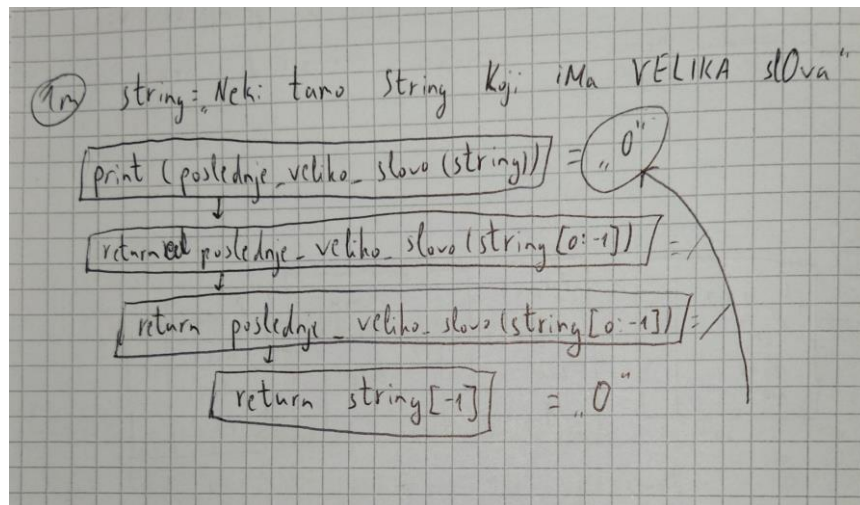 1m string = „Neki tamo String Koji iMa VELIKA slOva"
print (poslednje_veliko_slovo (string)) = „O"
return poslednje_veliko_slovo (string [0:-1]) = /
return poslednje_veliko_slovo (string [0:-1]) = /
return string [-1] = „O"